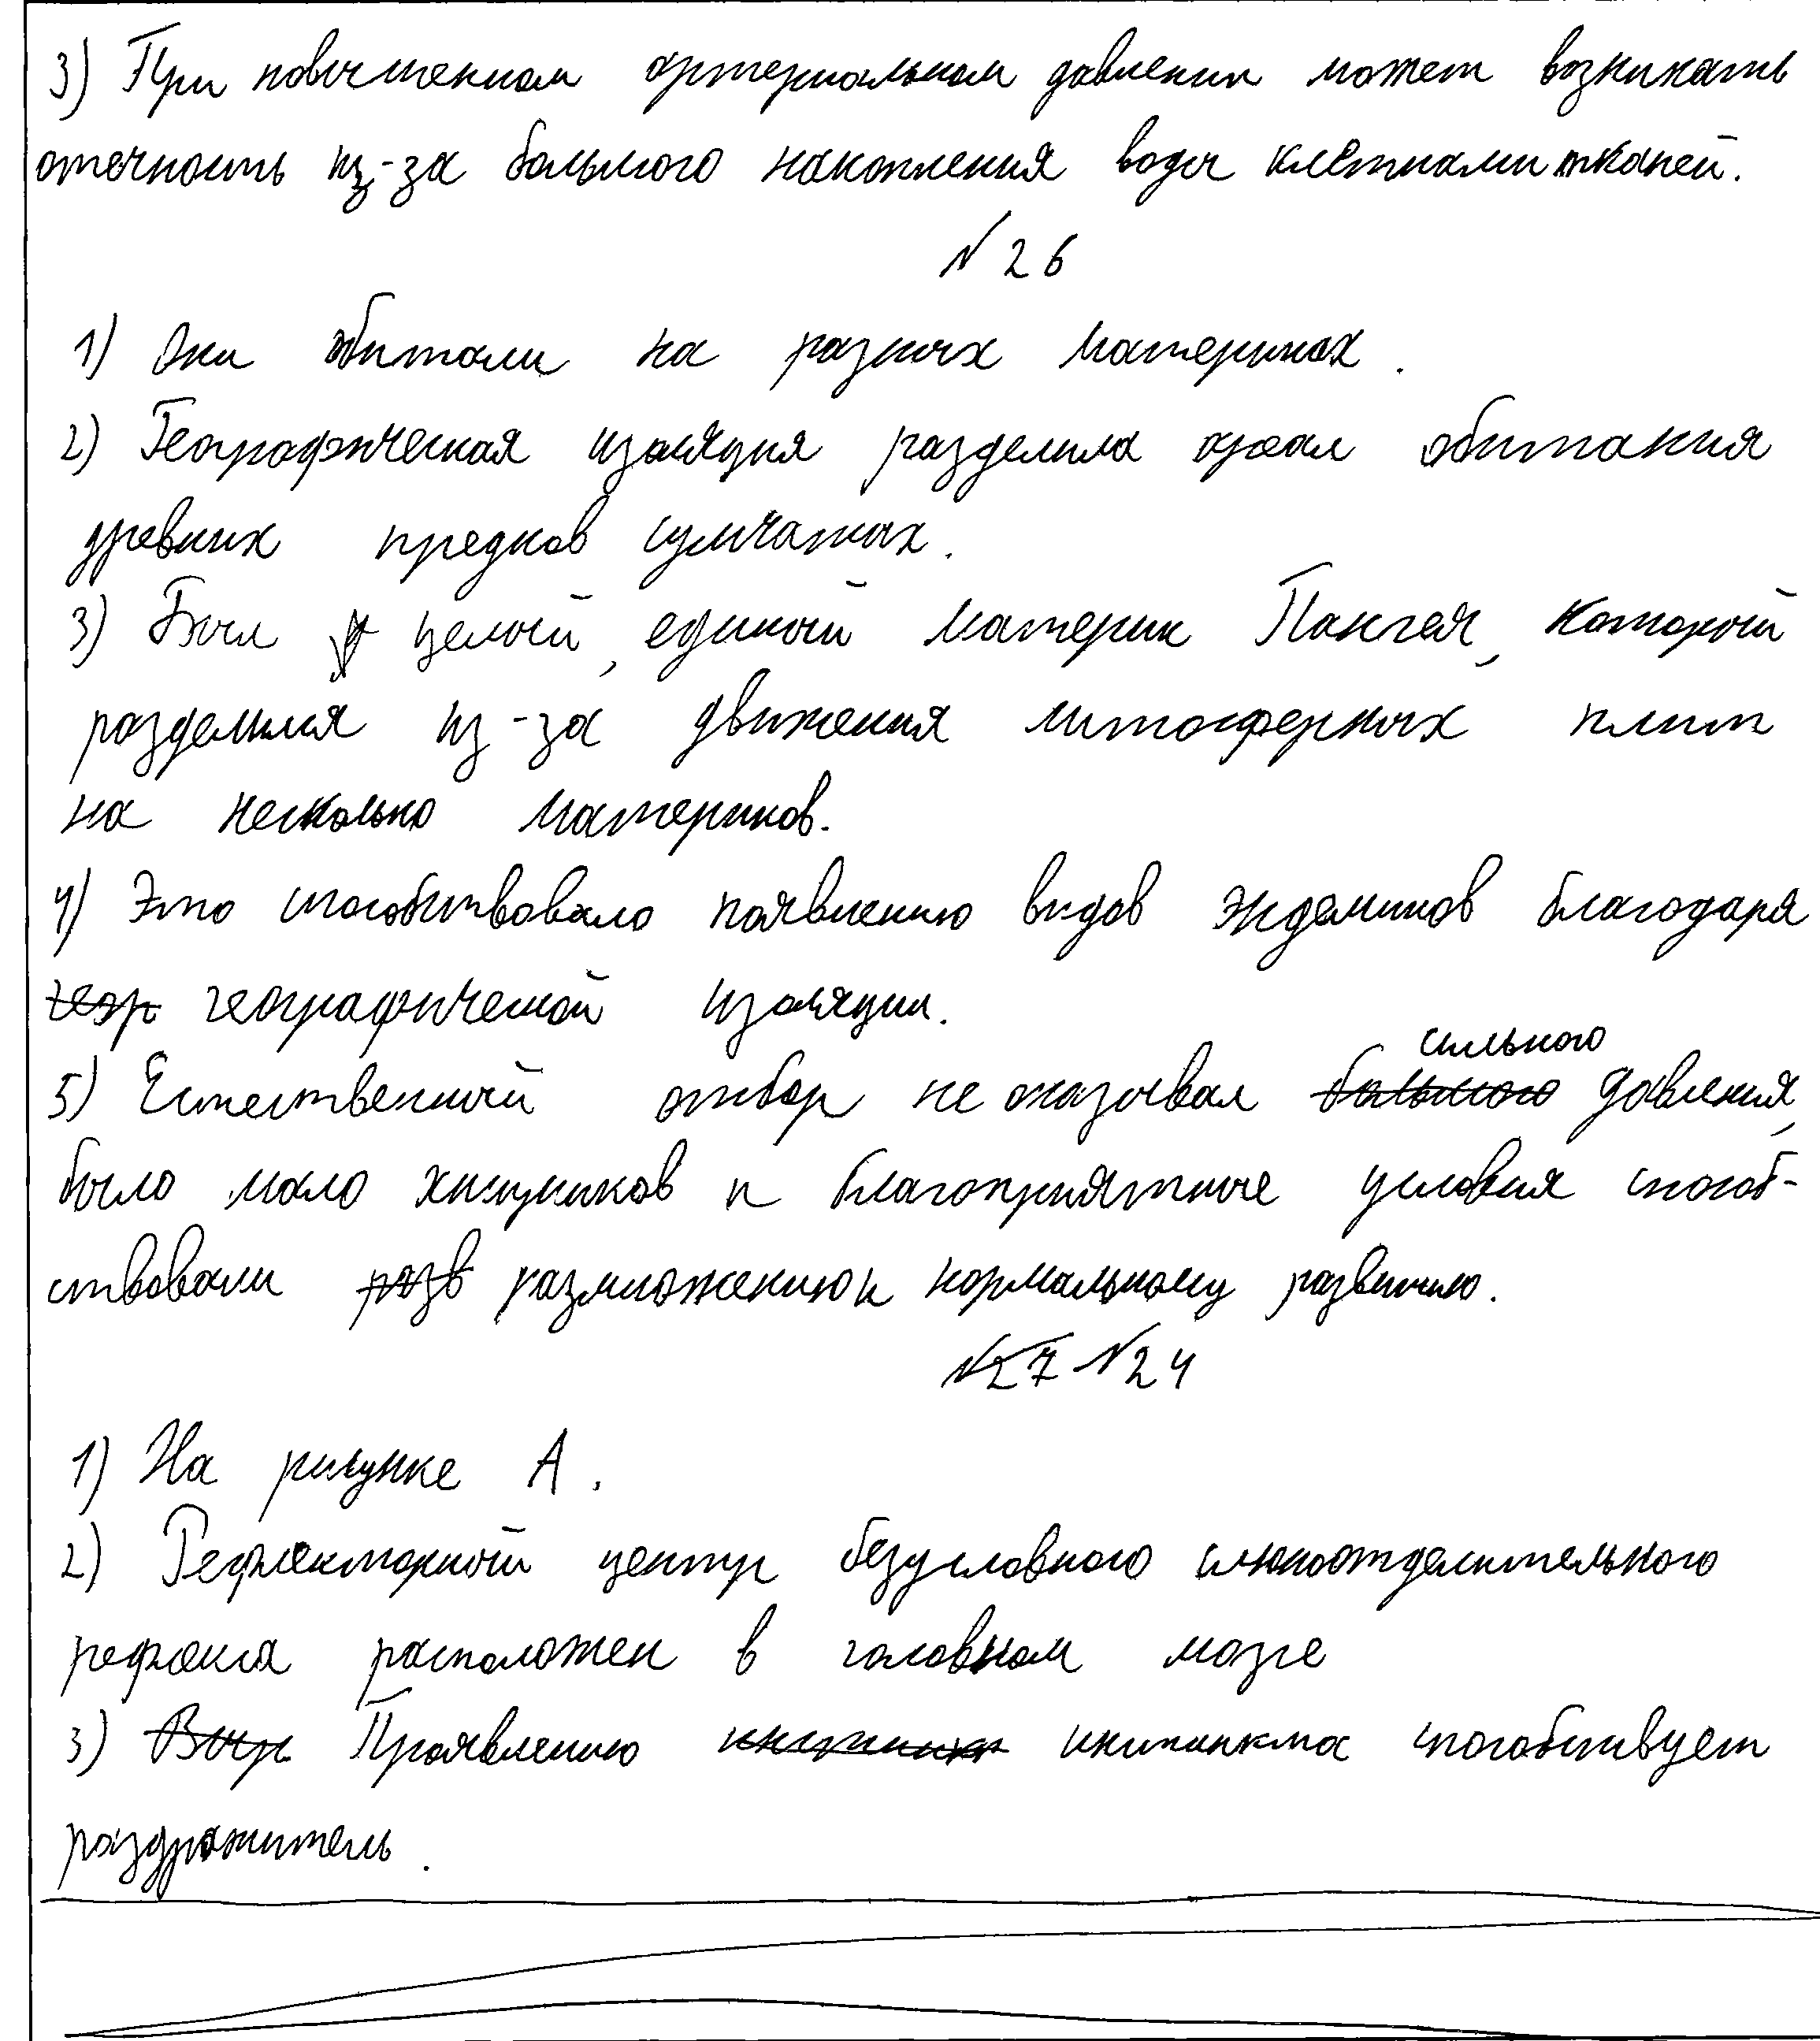 3) При повышенном артериальном давлении может возникать
отечность из-за большого накопления воды клетками тканей.
№ 26
1) Они обитали на разных материках.
2) Географическая изоляция разделила ареал обитания
древних предков сумчатых.
3) Был целый, единый материк Пангея, который
разделился из-за движения литосферных плит
на несколько материков.
4) Это способствовало появлению видов эндемиков благодаря
геогр географической изоляции.
5) Естественный отбор не оказывал большого сильного давления,
было мало хищников и благоприятные условия способ-
ствовали разв размножению и нормальному развитию.
№27 №24
1) На рисунке А.
2) Рефлекторный центр безусловного слюноотделительного
рефлекса расположен в головном мозге
3) Проявлению инстинкта способствует
раздражитель.